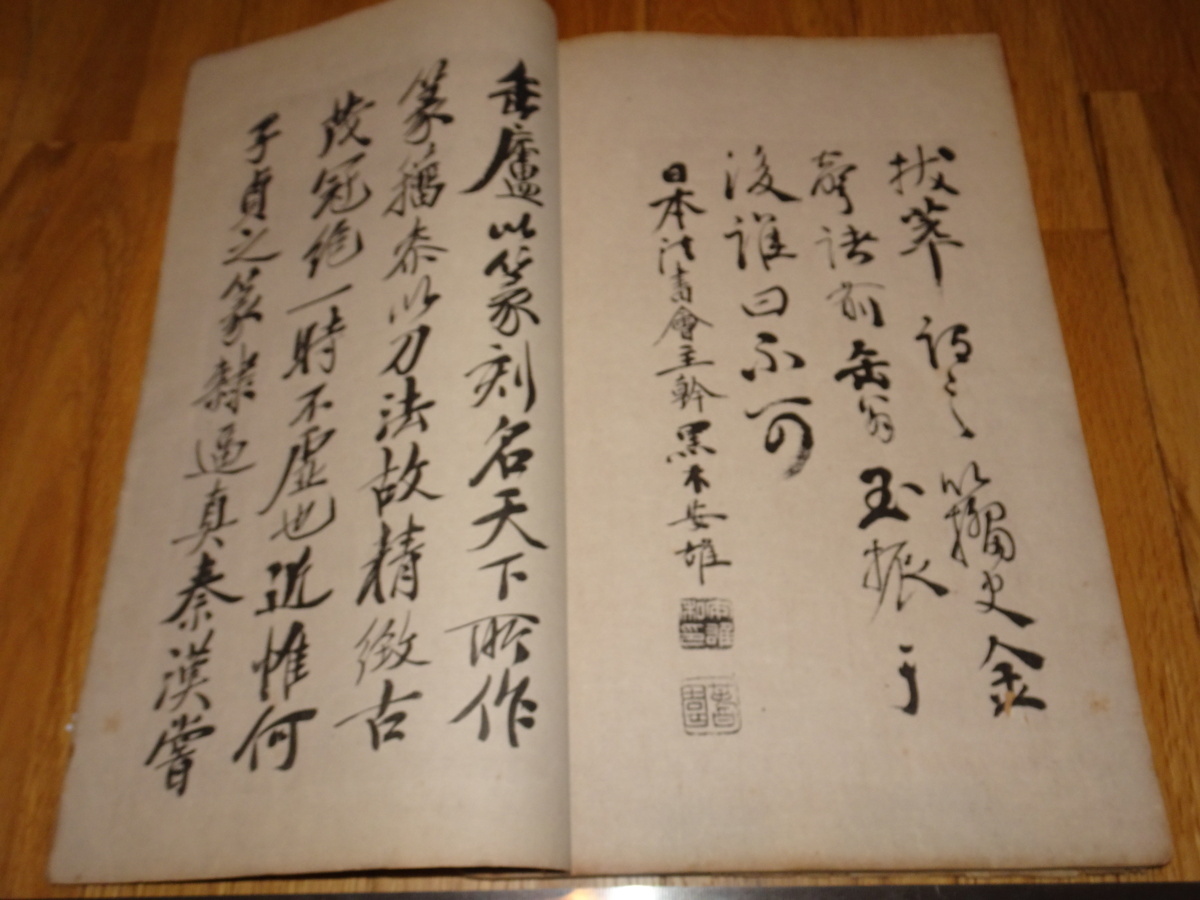 拔萃認之以籀史金
聲諸前缶翁玉振于
後誰曰不可
日本法書會主幹黑木安雄
缶廬以篆刻名天下所作
篆籀泰以刀法故精徴古
茂冠絶一時不虚也近惟何
子貞之篆隸逼真秦漢嘗